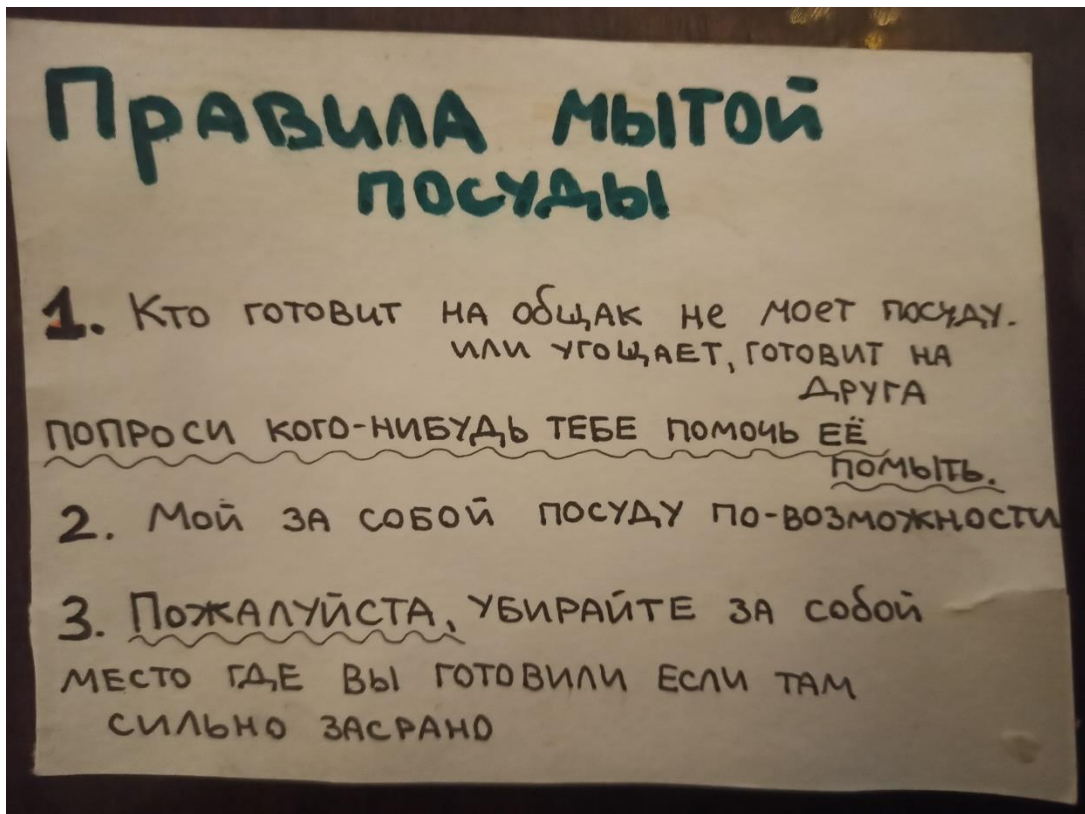 Правила мытой
посуды
1. Кто готовит на общак не моет посуду.
или угощает, готовит на
друга
попроси кого-нибудь тебе помочь её
помыть.
2. Мой за собой посуду по-возможности
3. Пожалуйста, убирайте за собой
место где вы готовили если там
сильно засрано